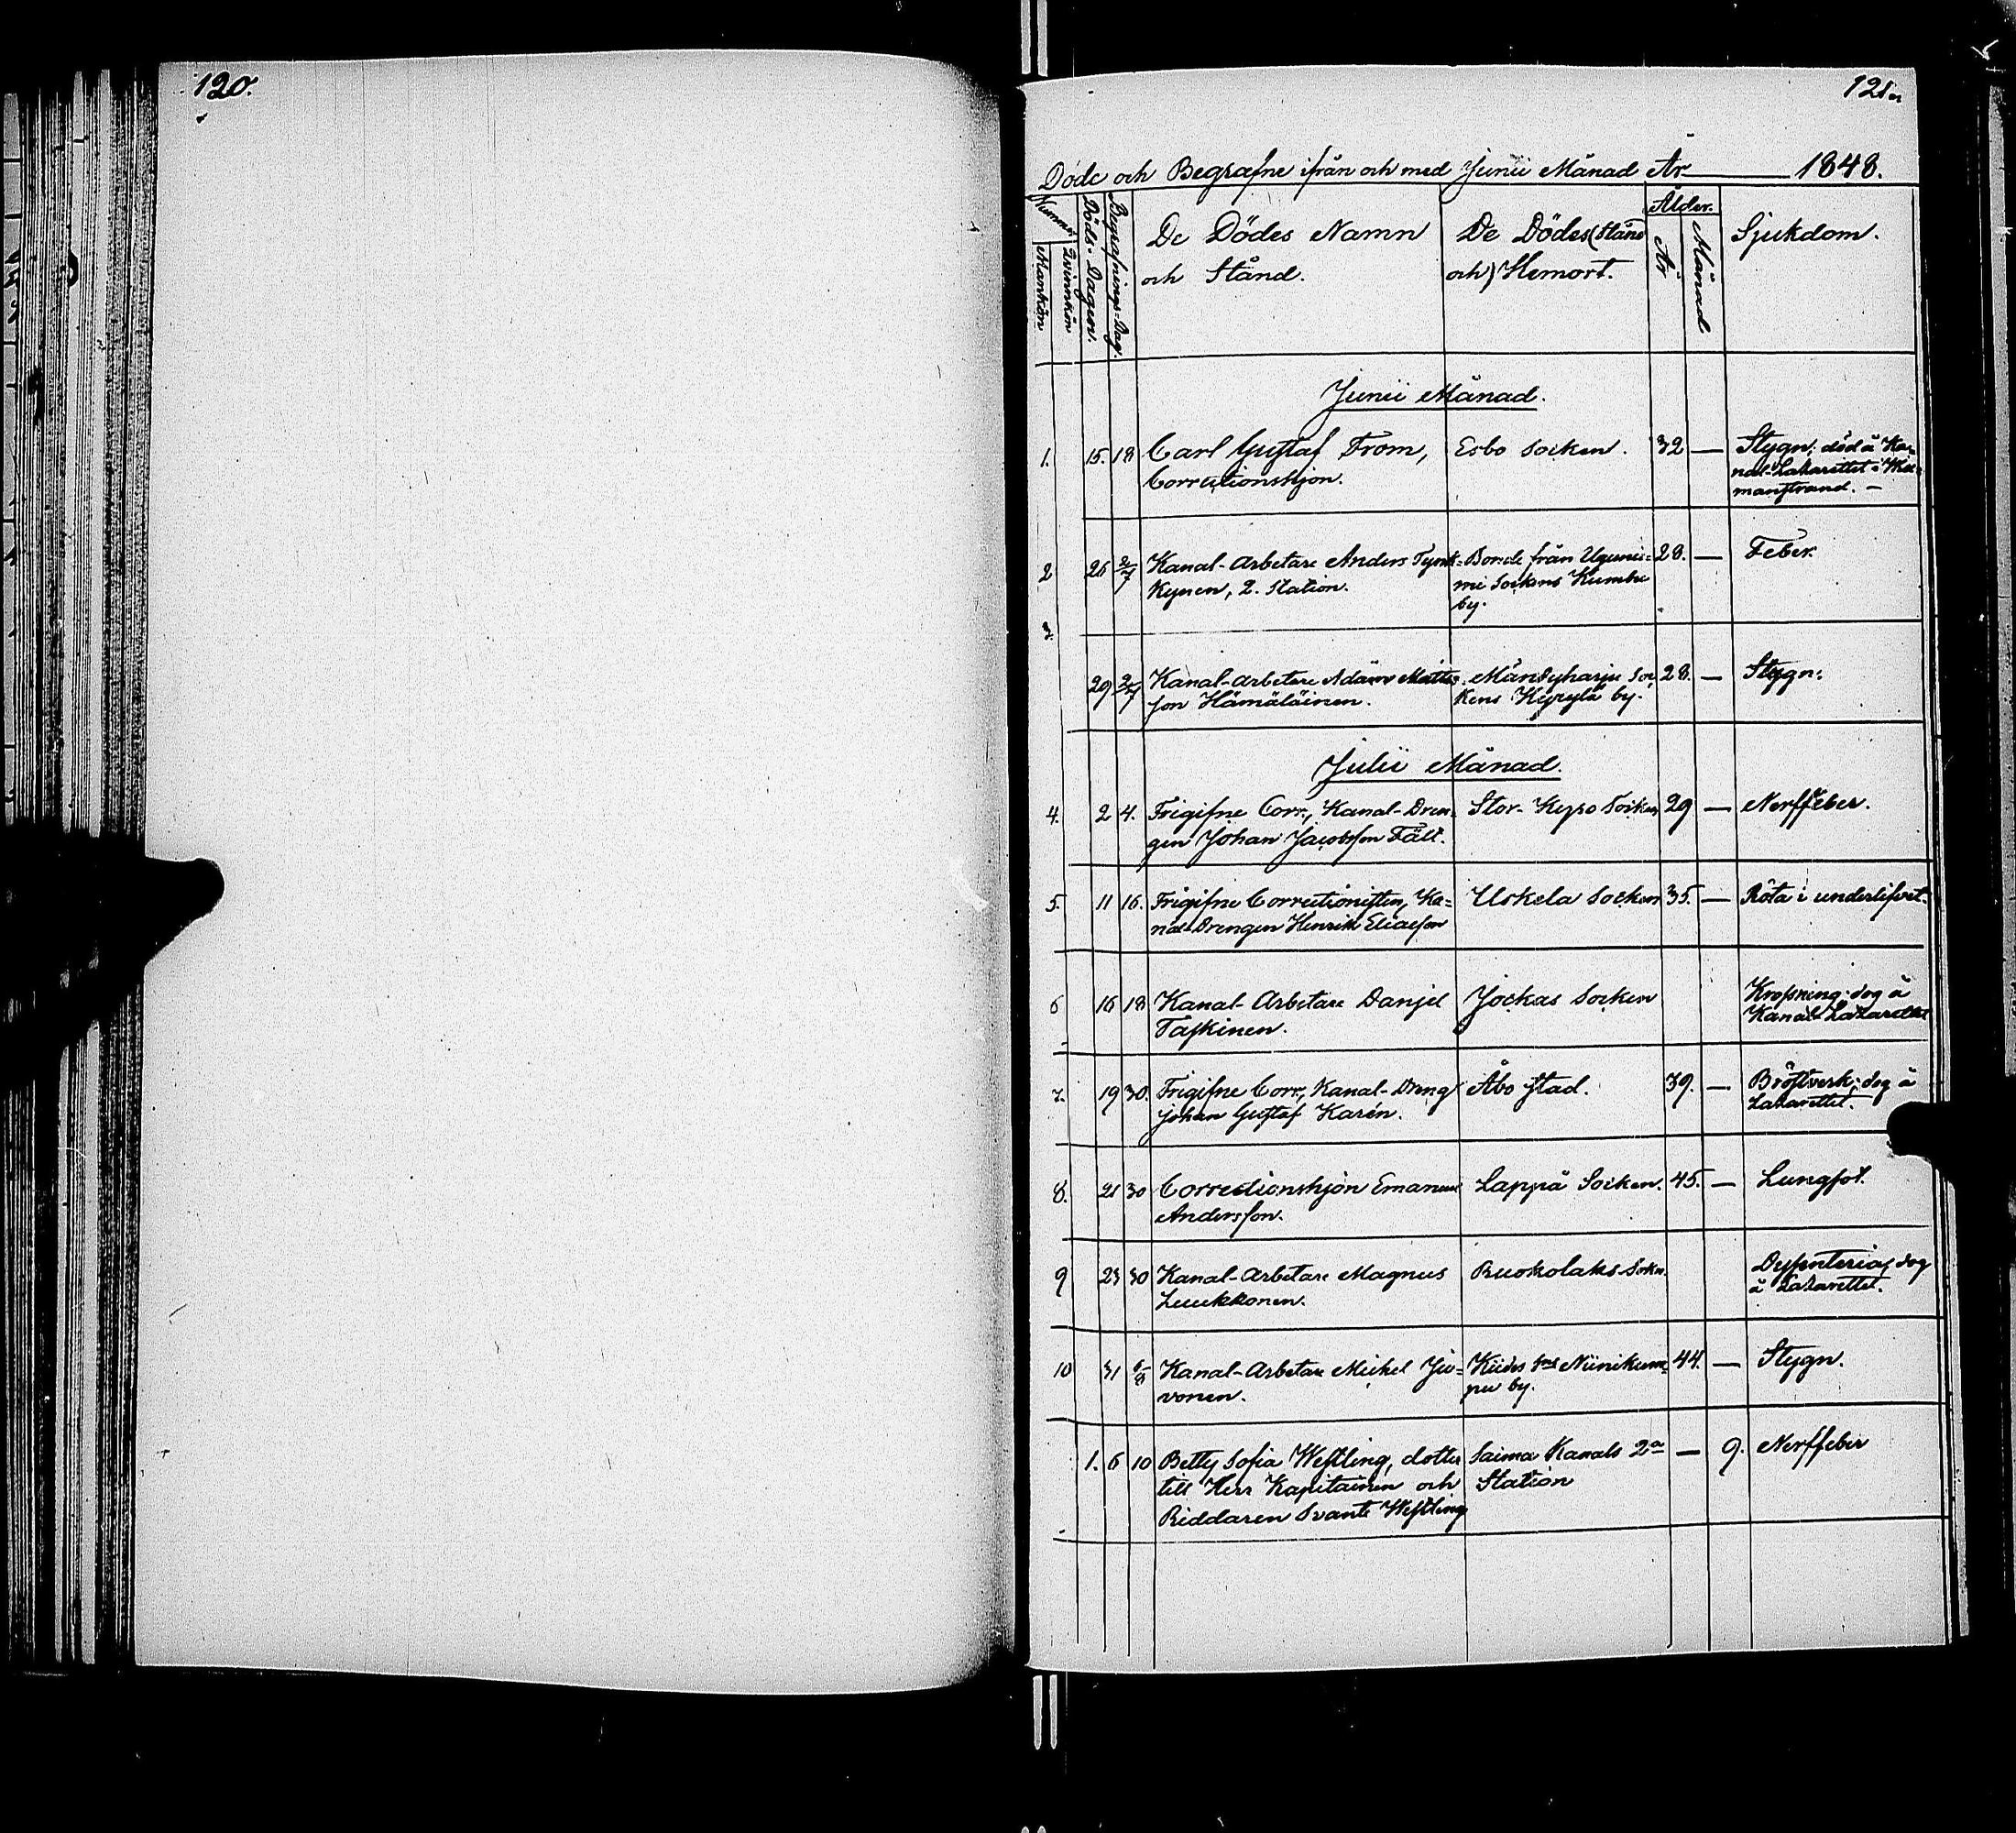 120.
121.
Döde och Begrafne ifrån och med Junii Månad År 1848.
Nummer
Mankön
Qvinnkön
Döds-Dagen.
Begrafnings-Dag.
De Dödes Namn
och Stånd.
De Dödes (Stånd
och) Hemort.
Ålder.
År
Månad
Sjukdom.
Junii Månad.
1. 15. 18 Carl Gustaf From, Esbo Socken. 32 — Stygn; död å Ka-
Correctionshjon. nal-Lazarettet i
manstrand. —
2 26 2/7 Kanal-Arbetare Anders Tynk- Bonde från Ugunie- 28. — Feber.
kynen, 2. Station. mi Sockens Kumbu
by.
3. 29 2/7 Kanal-Arbetare Adam Matts- Mändyharju Soc- 28. — Stygn.
son Hämäläinen. kens Hyyrylä by.
Julii Månad.
4. 2 4. Frigifne Corr., Kanal-Dren- Stor-Kyro Socken 29 — Nerffeber.
gen Johan Jacobsson Fält.
5. 11 16. Frigifne Correctionisten, Ka- Uskela Socken 35. — Röta i underlifvet.
nal-Drengen Henrik Eliasson
6 16 18 Kanal-Arbetare Danjel Jockas Socken Krossning; dog å
Taskinen. Kanal-Lazarettet
7. 19 30. Frigifne Corr., Kanal-Dreng Åbo stad. 39. — Bröstverk; dog å
Johan Gustaf Karén. Lazarettet.
8. 21 30 Correctionshjon Emanuel Lappå Socken. 45. — Lungsot.
Andersson.
9 23 30 Kanal-Arbetare Magnus Ruokolaks Sokn. Dysenteria; dog
Luukkonen. å Lazarettet.
10 31 6/8 Kanal-Arbetare Mickel Ju- Kides Sns Niinikum- 44. — Stygn.
vonen. pu by.
1. 6 10 Betty Sofia Westling, dotter Saima Kanals 2a — 9. Nerffeber
till Herr Kapitainen och Station
Riddaren Svante Westling